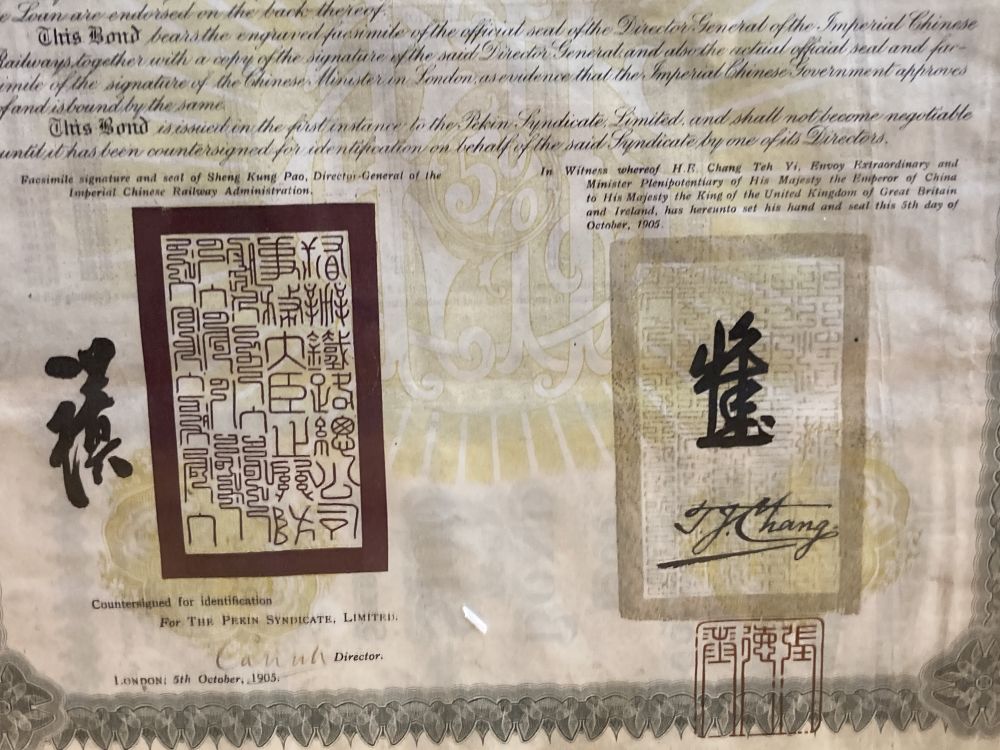 Loan are endorsed on the back thereof.
This Bond bears the engraved facsimile of the official seal of the Director General of the Imperial Chinese
Railways, together with a copy of the signature of the said Director General, and also the actual official seal and fac-
simile of the signature of the Chinese Minister in London, as evidence that the Imperial Chinese Government approves
of and is bound by the same.
This Bond is issued in the first instance to the Pekin Syndicate, Limited, and shall not become negotiable
until it has been countersigned for identification on behalf of the said Syndicate by one of its Directors.
Facsimile signature and seal of Sheng Kung Pao, Director-General of the
Imperial Chinese Railway Administration.
In Witness whereof H.E. Chang Teh Yi, Envoy Extraordinary and
Minister Plenipotentiary of His Majesty the Emperor of China
to His Majesty the King of the United Kingdom of Great Britain
and Ireland, has hereunto set his hand and seal this 5th day of
October, 1905.
5%
督辦鐵路總公司
事務大臣之關防
T. Y. Chang
張德彝
Countersigned for identification
For THE PEKIN SYNDICATE, LIMITED.
Director.
LONDON: 5th October, 1905.